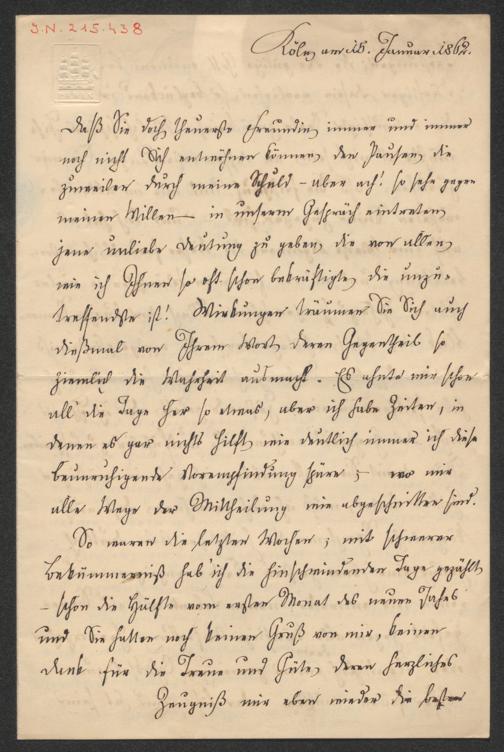 J.N. 215.438
Köln, am 15. Januar 1862.
Daß Sie doch, theuerste Freundin, immer und immer
noch nicht Sich entwöhnen können, den Pausen, die
zuweilen durch meine Schuld – aber ach! so sehr gegen
meinen Willen – in unserm Gespräch eintreten,
jene unliebe Deutung zu geben, die von allen,
wie ich Ihnen so oft schon bekräftigte, die unzu-
treffendste ist! Wirkungen träumen Sie Sich auch
dießmal von Ihrem Wort, deren Gegentheil so
ziemlich die Wahrheit ausmacht. Es ahnte mir schon
all' die Tage her so etwas, aber ich habe Zeiten, in
denen es gar nichts hilft, wie deutlich immer ich diese
beunruhigende Vorempfindung spüre; wo mir
alle Wege der Mittheilung wie abgeschnitten sind.
So waren die letzten Wochen; mit schwerer
Bekümmerniß hab' ich die hinschwindenden Tage gezählt
– schon die Hälfte vom ersten Monat des neuen Jahres
und Sie hatten noch keinen Gruß von mir, keinen
Dank für die Treue und Güte, deren herzliches
Zeugniß mir eben wieder die besten